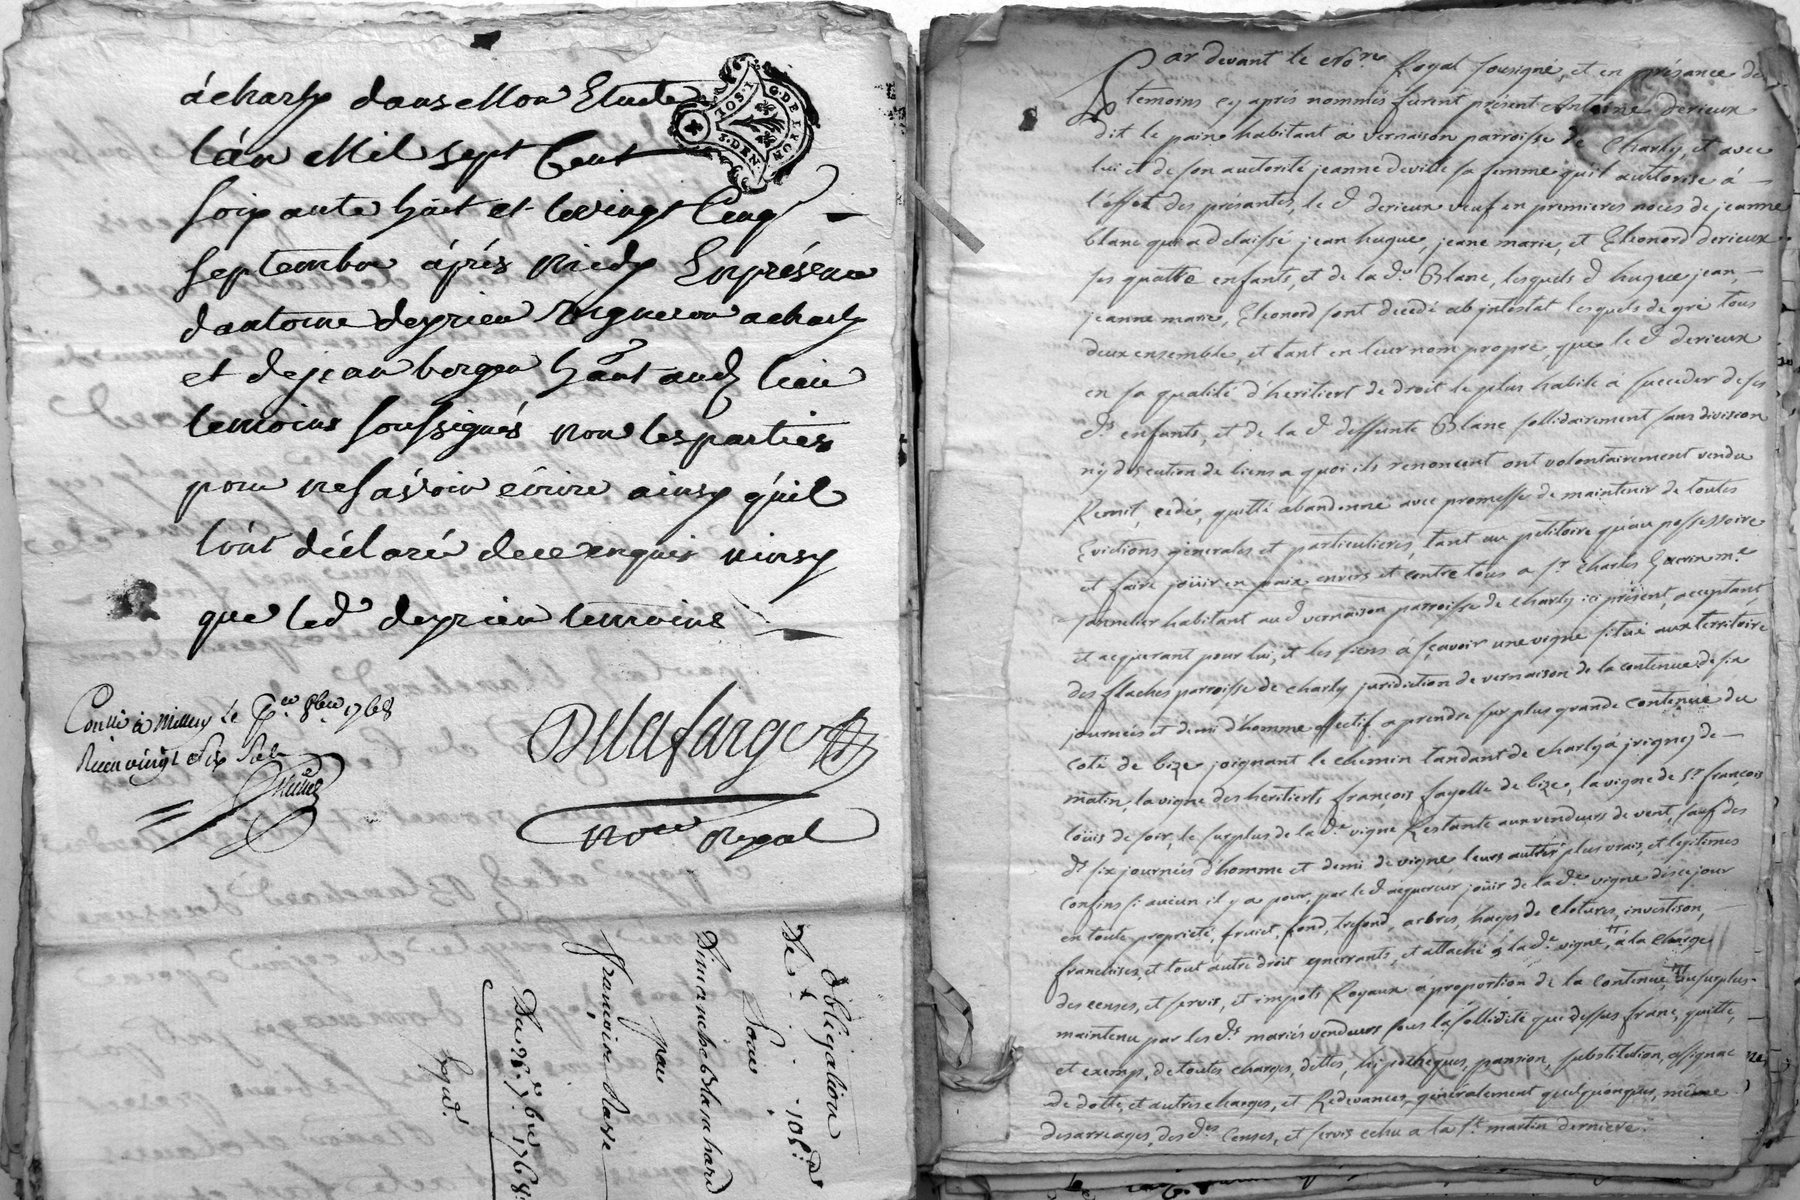 à charly dans Mon Etude
L'an Mil sept Cent
soixante huit et le vingt Cinq
septembre après Midy En présence
d'antoine deyrieu Vigneron a charly
et de jean berger h̄ant aud. lieu
temoins soussignés non les parties
pour ne sávoir écrire ainsy qu'il
l'ont déclaré de ce enquis ainsy
que led. deyrieu temoins
Con.llé à Millery le 8bre 1768
Reçu vingt six sols
Delafarge
No.re Royal
Obligation
De 108.
Pour
Dimanche Blanchard
par
françoise
Du 25. 7.bre 1768.
Exped.
Par devant le No.re Royal sousigné, et en présance de
temoins cy aprés nommés furent présent Antoine derieux
dit le paire habitant a vernaison parroisse de Charly, et avec
lui et de son auctorité jeanne deville sa femme qu'il auctorise à
l'effet des présantes, le d. derieux veuf en premieres noces de jeanne
blanc qui a delaissé jean hugue, jeane marie, et Eleonord derieux
ses quattre enfants, et de la d.e Blanc, lesquels d. hugue jean,
jeanne marie, Eleonord sont décédé ab intestat lesquels de gré tous
deux ensemble, et tant en leur nom propre, que le d. derieux
en sa qualité d'heritiert de droit le plus habile à succeder de ses
d.s enfants, et de la d. deffunte Blanc sollidairement sans division
ny discution de biens a quoi ils renoncent ont volontairement vendu
Remit, cédé, quitté abandonne avec promesse de maintenir de toutes
Evictions generales et particulieres, tant au petitoire qu'au possessoire
et faire joüir en paix envers et contre tous a s.r Charles Guerin m.e
tonnelier habitant au d. vernaison parroisse de Charly ici présent, acceptant
et acquerant pour lui, et les siens à sçavoir une vigne situé aux territoire
des flaches parroisse de charly juridiction de vernaison de la contenue de six
journées et demi d'homme effectif a prendre sur plus grande contenue du
coté de bize joignant le chemin tandant de Charly à jrigny de
matin, la vigne des heritierts françois fayolle de bize, la vigne de S.r françois
loüis de soir, le surplus de la d.e vigne Restante aux vendeurs de vent, sauf des
d.s six journées d'homme et demi de vigne leurs autres plus vrais, et legitimes
confins si aucun il y a pour, par le d. acquereur joüir de la d.e vigne dés ce jour
en toute propriété, fruict, fond, trefond, arbres, hayes de clotures, investison,
franchises, et tout autre droit y narrants, et attaché a la d.e vigne, à la charge
des censes, et servis, et impots Royaux à proportion de la contenue, du surplus
maintenu par les d.s mariés vendeurs sous la sollidité que dessus franc, quitte,
et exemp, de toutes charges, dettes, hipotheques, pansion, substitution, assignac
de dotte, et autres charges, et Redevances, generalement quelquonques, même
des arreages des d.es Censes, et servis echu a la S.t martin derniere.